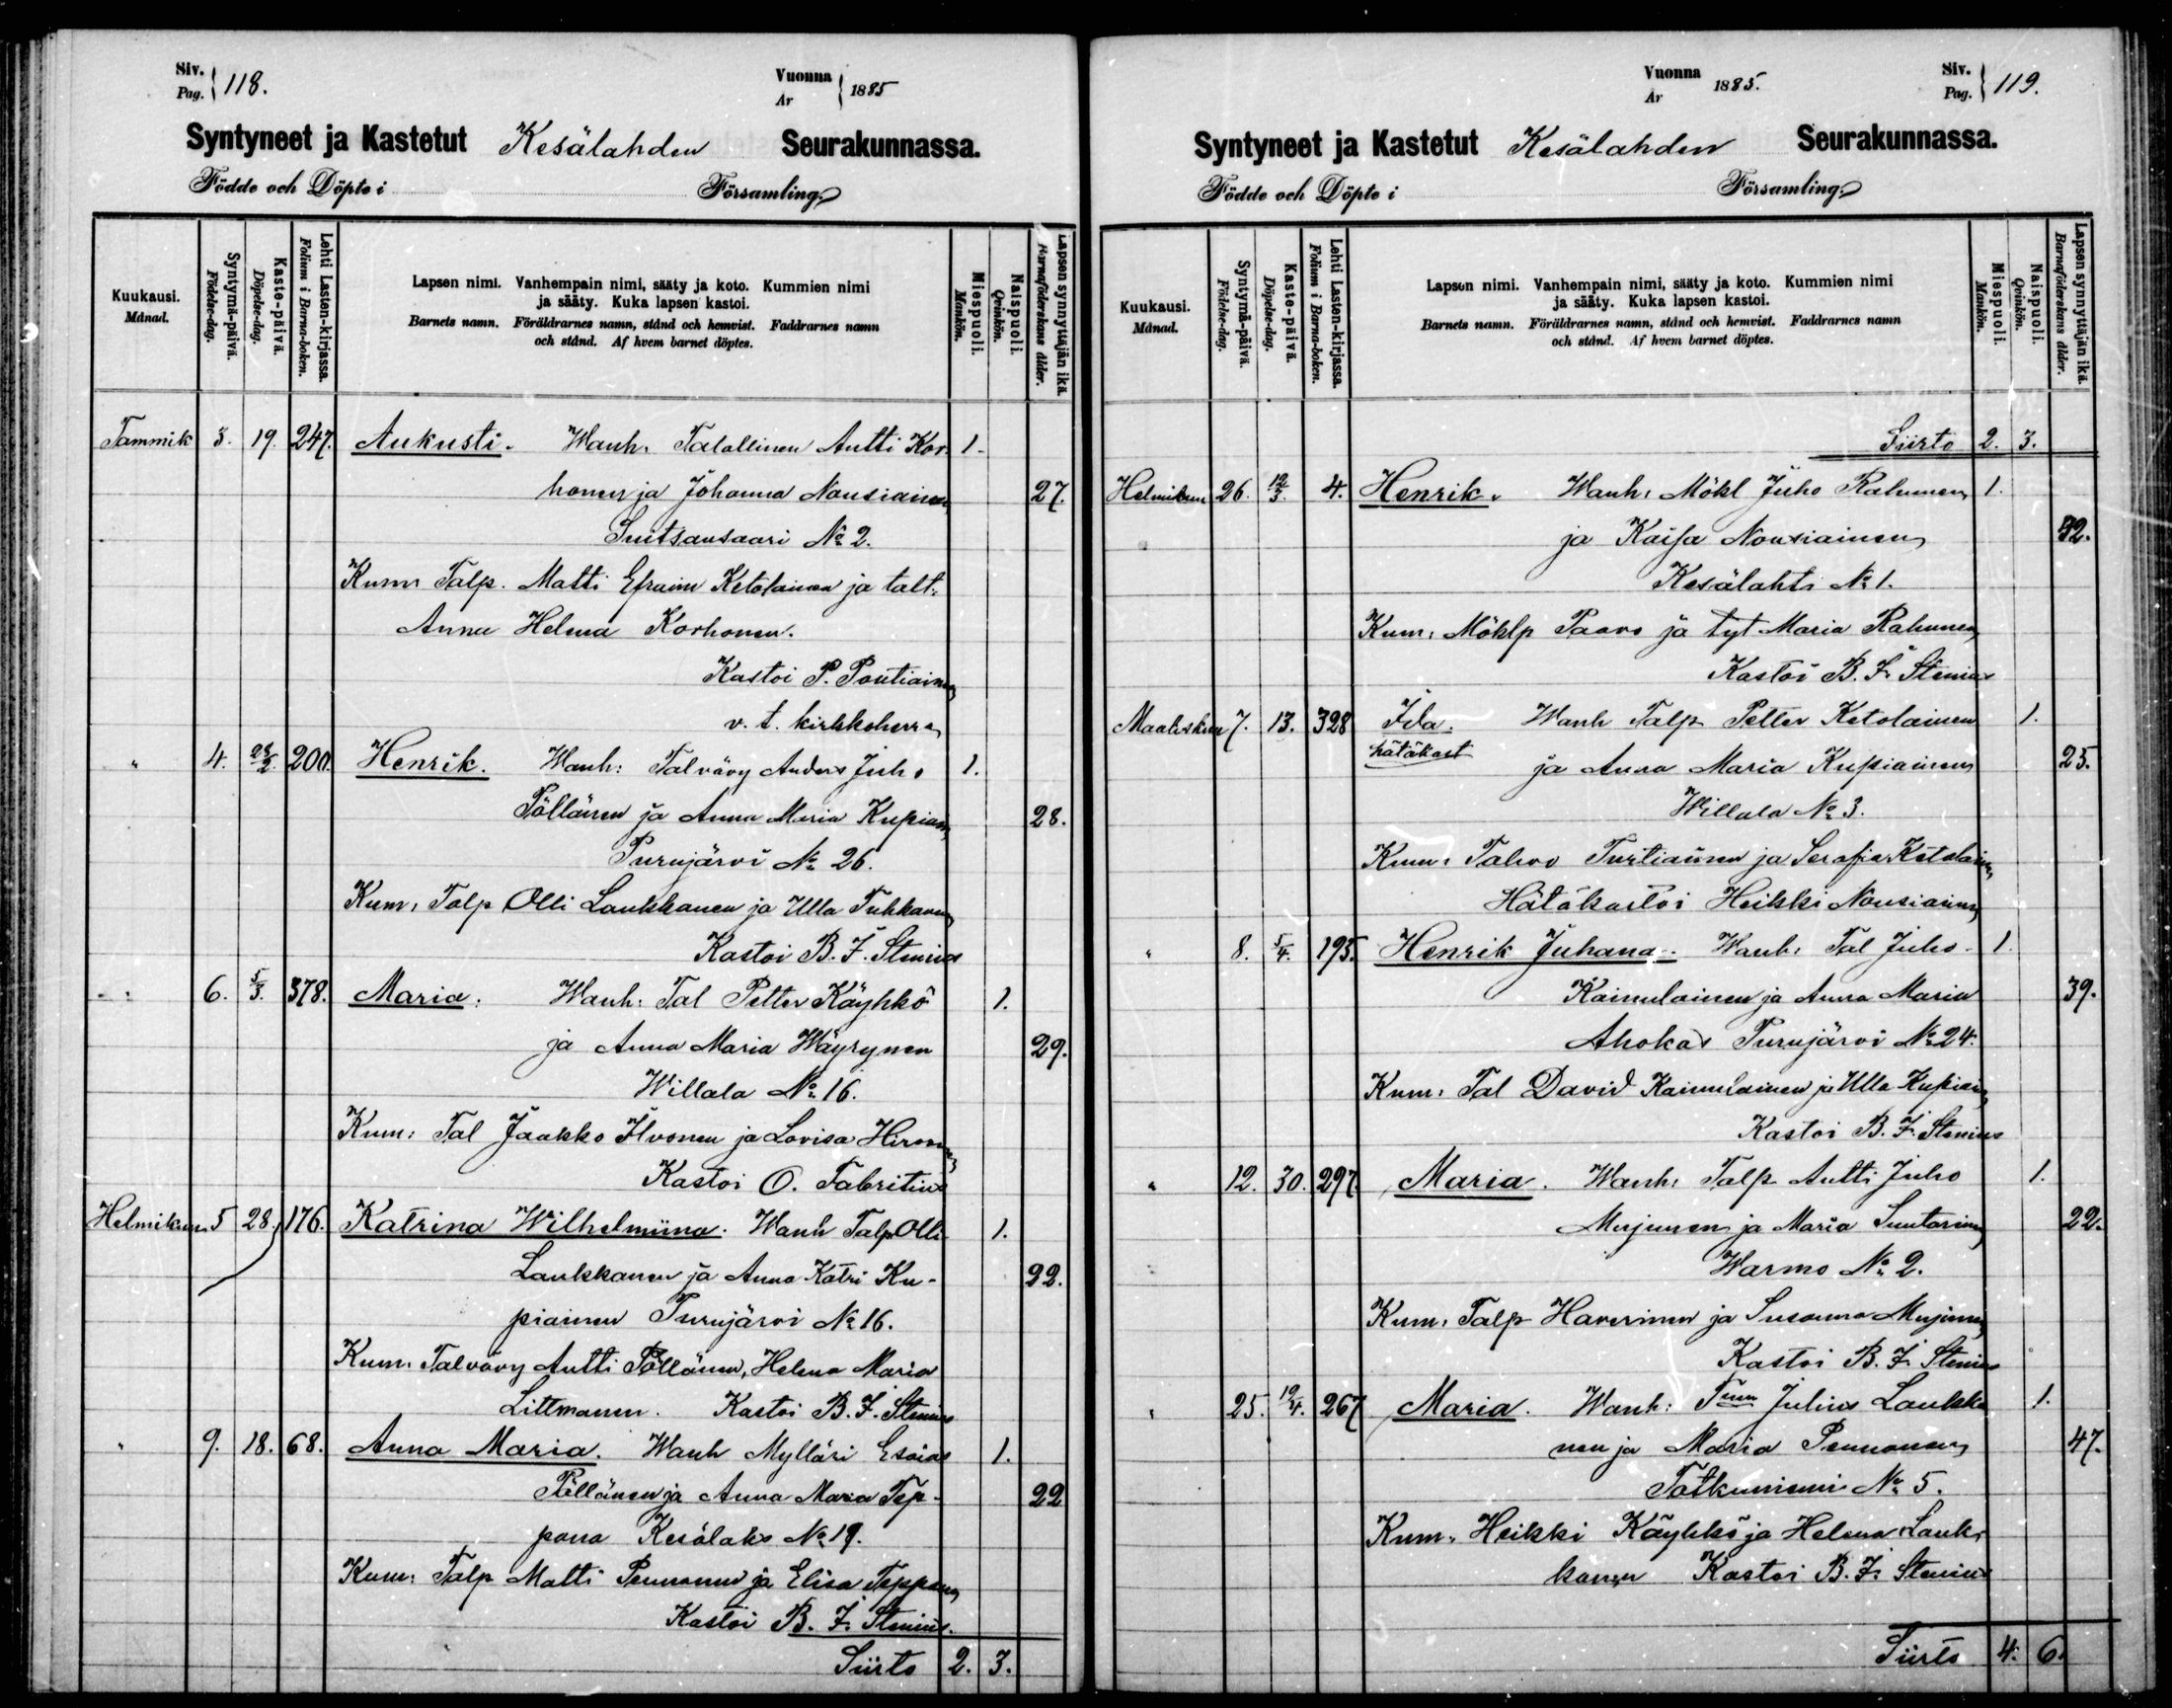 Siv. Pag. 118. Vuonna År 1885
Syntyneet ja Kastetut Kesälahden Seurakunnassa.
Födde och Döpte i Församling.
Kuukausi. Månad.
Syntymä-päivä. Födelse-dag.
Kaste-päivä. Döpelse-dag.
Lehti Lasten-kirjassa. Folium i Barna-boken.
Lapsen nimi. Vanhempain nimi, sääty ja koto. Kummien nimi
ja sääty. Kuka lapsen kastoi.
Barnets namn. Föräldrarnes namn, stånd och hemvist. Faddrarnes namn
och stånd. Af hvem barnet döptes.
Miespuoli. Mankön.
Naispuoli. Qvinkön.
Lapsen synnyttäjän ikä. Barnaföderskans ålder.
Tammik 3. 19. 247. Aukusti. Wanh. Talollinen Antti Kor- 1.
honen ja Johanna Nousiainen 27.
Suitsansaari No 2.
Kum. Talp. Matti Efraim Ketolainen ja talt.
Anna Helma Korhonen.
Kastoi P. Pontiainen
v. t. kirkkoherra
" 4. 23/2. 200. Henrik. Wanh: Talvävy Anders Juho 1.
Pöllänen ja Anna Maria Kupiain 28.
Purujärvi No 26.
Kum. Talp Olli Laukkanen ja Ulla Tuhkanen
Kastoi B. F. Stenius
" 6. 5/3. 378. Maria. Wanh: Tal Petter Käyhkö 1.
ja Anna Maria Wäyrynen 29.
Willala No 16.
Kum: Tal Jaakko Ilvonen ja Lovisa Hirvonen
Kastoi O. Fabritius
Helmikuu 5 28. 176. Katrina Wilhelmiina. Wanh Talp Olli 1.
Laukkanen ja Anna Katri Ku- 22.
piainen Purujärvi No 16.
Kum. Talvävy Antti Pöllänen, Helena Maria
Littmanen. Kastoi B. F. Stenius
" 9. 18. 68. Anna Maria. Wanh Mylläri Esaias 1.
Pöllänen ja Anna Maria Tep- 22
pana Kesälaks No 19.
Kum: Talp Matti Pennanen ja Elisa Teppana
Kastoi B. F. Stenius.
Siirto 2. 3.
Vuonna År 1885. Siv. Pag. 119.
Syntyneet ja Kastetut Kesälahden Seurakunnassa.
Födde och Döpte i Församling.
Kuukausi. Månad.
Syntymä-päivä. Födelse-dag.
Kaste-päivä. Döpelse-dag.
Lehti Lasten-kirjassa. Folium i Barna-boken.
Lapsen nimi. Vanhempain nimi, sääty ja koto. Kummien nimi
ja sääty. Kuka lapsen kastoi.
Barnets namn. Föräldrarnes namn, stånd och hemvist. Faddrarnes namn
och stånd. Af hvem barnet döptes.
Miespuoli. Mankön.
Naispuoli. Qvinkön.
Lapsen synnyttäjän ikä. Barnaföderskans ålder.
Siirto 2. 3.
Helmikuu 26. 12/3. 4. Henrik. Wanh: Mökl Juho Rahunen 1.
ja Kaisa Nousiainen
Kesälahti No 1.
Kum: Möklp Paavo ja tyt Maria Rahunen
Kastoi B. F. Stenius
Maaliskuu 7. 13. 328 Ida. Wanh Talp Petter Ketolainen 1.
hätäkast ja Anna Maria Kupiainen 25.
Willala No 3.
Kum: Talvo Turtiainen ja Serafia Ketolain
Hätäkastoi Heikki Nousiainen
" 8. 5/4. 195. Henrik Juhana. Wanh: Tal Juho 1.
Kainulainen ja Anna Maria 39.
Ahokas Purujärvi No 24.
Kum: Tal David Kainulainen ja Ulla Kupiain
Kastoi B. F. Stenius
" 12. 30. 297 Maria. Wanh: Talp Antti Juho 1.
Mujunen ja Maria Suutarinen 22.
Warmo No 2.
Kum. Talp Haverinen ja Susanna Mujunen
Kastoi B. F. Stenius
" 25. 19/4. 267 Maria. Wanh: Julius Laukka 1.
nen ja Maria Pennanen 47.
Totkuniemi No 5.
Kum. Heikki Käyhkö ja Helena Lauk-
kanen Kastoi B. F. Stenius
Siirto 4. 6.